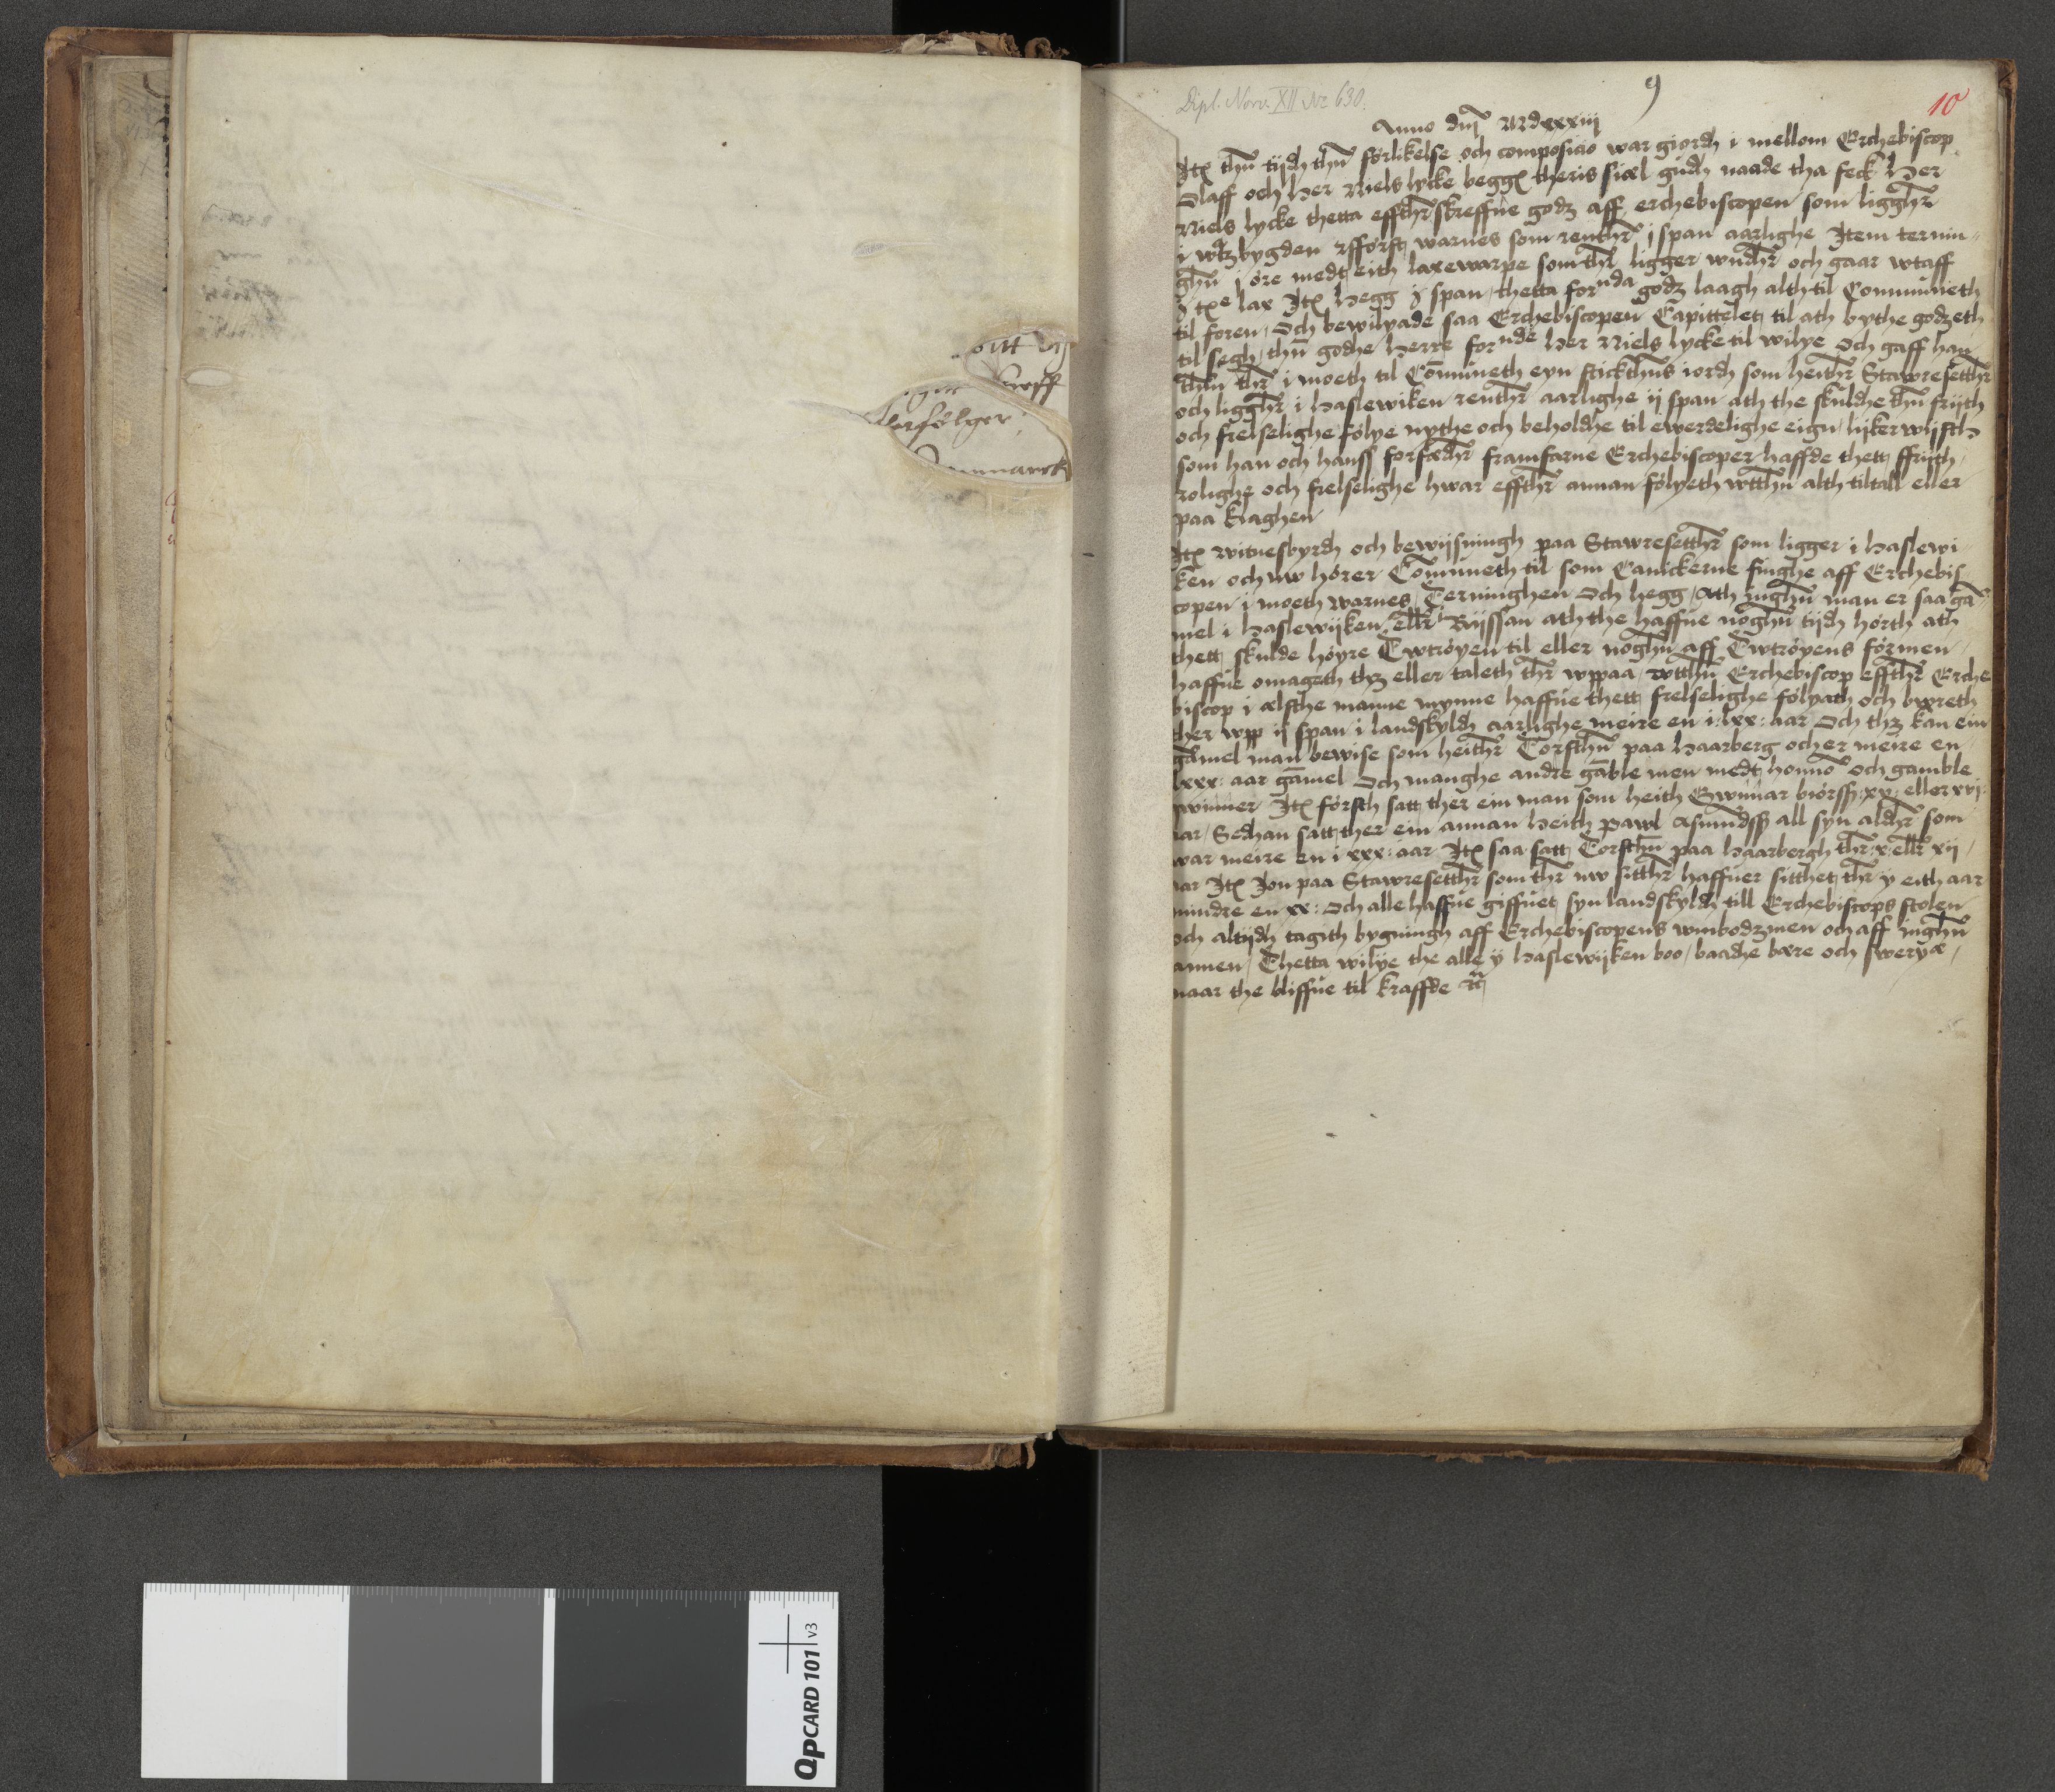 oitt
verfølger
Danmarck
Dipl. Norv. XII Nr 630.
9
10
Anno dnj MRdxxxiij
Itx thn tijdh thn forlikelse och composicio war giordh i mellom Erchebiscop
Olaff och Her Niels lycke begges theris siæl gudh naade tha feck Her
Niels lycke thetta effthrskreffne godz aff erchebiscopen som liggher
i wtzbygden Ffførst warnes som renthr j span aarlighe Item ternin
ghn j øre medt eith laxewarpe som thr ligger wndhr och gaar wtaff
lax Itx Hegg span thetta fornda godz laagh alth til Communeth
til foren Och bewilyade saa Erchebiscopen Capittelet til ath bythe godzeth
til segh thn godhe Herre fornde Her Niels lycke til wilye Och gaff han
thm thr i moeth til Communeth eyn stickthns iordh som heithr Stawresetthr
och liggher i Haslewiken renthr aarlighe ij span ath the skuldhe thn friith
och frelselighe følye nythe och beholdhe til ewerdelighe eign lijkerwijsth
som han och hanss forfædhr framfarne Erchebiscoper haffde thett ffriith
rolighe och frelselighe hwar effthr annan følyeth wtthn alth tiltall eller
paa klaghen
Itx witnesbyrdh och bewijsningh paa Stawresetthr som ligger i Haslewi
ken och nw hører Communeth til som Canickerne finghe aff Erchebis
copen i moeth warnes Terninghen Och hegg Ath inghn man er saa ga
mel i Haslewijken ellr Riissan ath the haffue noghn tijdh hørth ath
thett skulde høyre Twtrøyen til eller noghn aff Twtrøyens formen
haffue omageth thz eller taleth thr wppaa wtthn Erchebiscop effthr Erche
biscop i ælsthe manne mynne haffue thett frelselighe følyath och bæreth
ther wpp ij span i landskyldh aarlighe meire en i lxx: aar Och thz kan ein
gamel man bewise som heithr Torsthn paa Haarberg och er meire en
lxxx: aar gamel Och manghe andre gamble men medt honno och gamble
qwinner Itx førsth satt ther ein man som heith Gwnnar biørss xv: eller xvi:
aar Sedhan satt ther ein annan Heith Pawl Asmudss all syn aldhr som
war meire en i xxx: aar Itx saa satt Torsthn paa Haarbergh thr: x: ellr xij
aar Itx Jon paa Stawresetthr som thr nw sitthr haffuer sitthet thr y eith aar
mindre en xx: Och alle haffue giffuet syn landskyldh till Erchebiscops stolen
och altijdh tagith bygningh aff Erchebiscopens wmbodzmen och aff inghn
annen Thetta wilye the alle y Haslewijken boo baadhe bære och sweryæ
naar the bliffue til kraffde